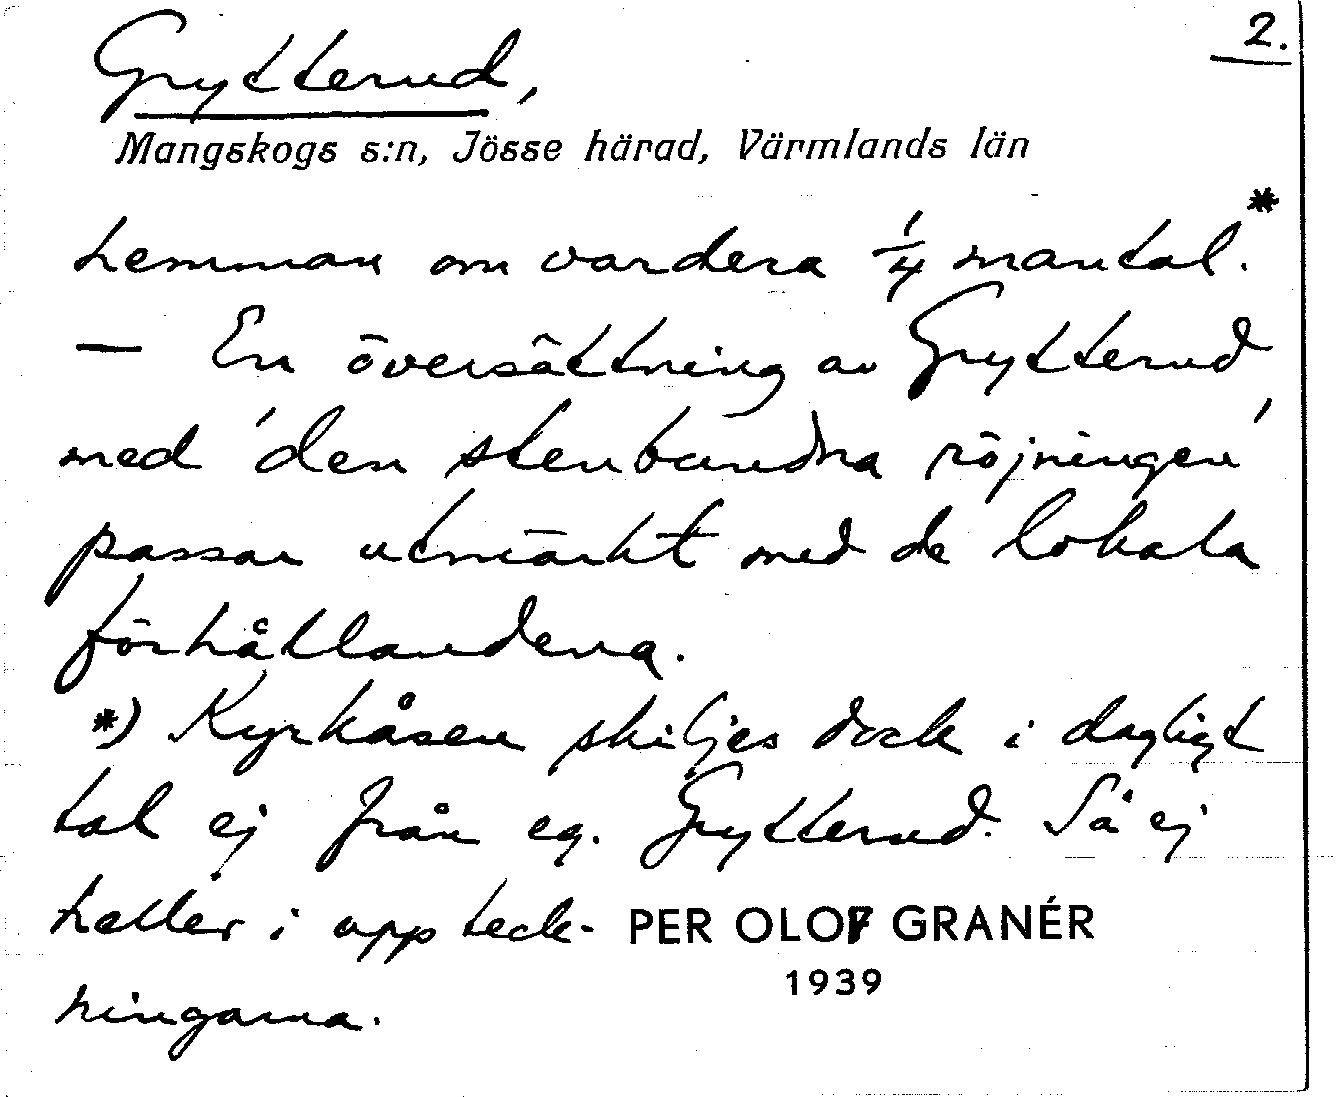 2.
Grytterud,
Mangskogs s:n, Jösse härad, Värmlands län
hemman om vardera 1/4 mantal.*
— En översättning av Grytterud
med 'den stenbundna röjningen'
passar utmärkt med de lokala
förhållandena.
*) Kyrkåsen skiljes dock i dagligt
tal ej från eg. Grytterud. Så ej
heller i uppteck-
ningarna.
PER OLOF GRANÉR
1939